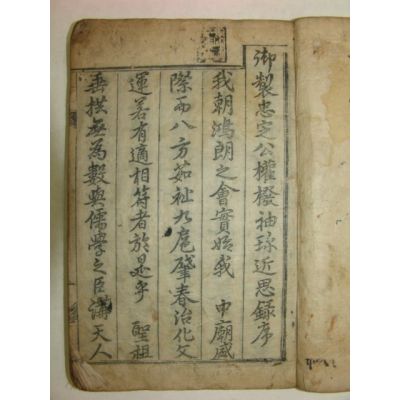 御製忠定公權橃袖珍近思錄序
我朝鴻朗之會實始我 中廟咸
際而八方茹祉九扈肇春治化文
運若有適相符者於是乎 聖祖
垂拱無為數與儒學之臣講天人